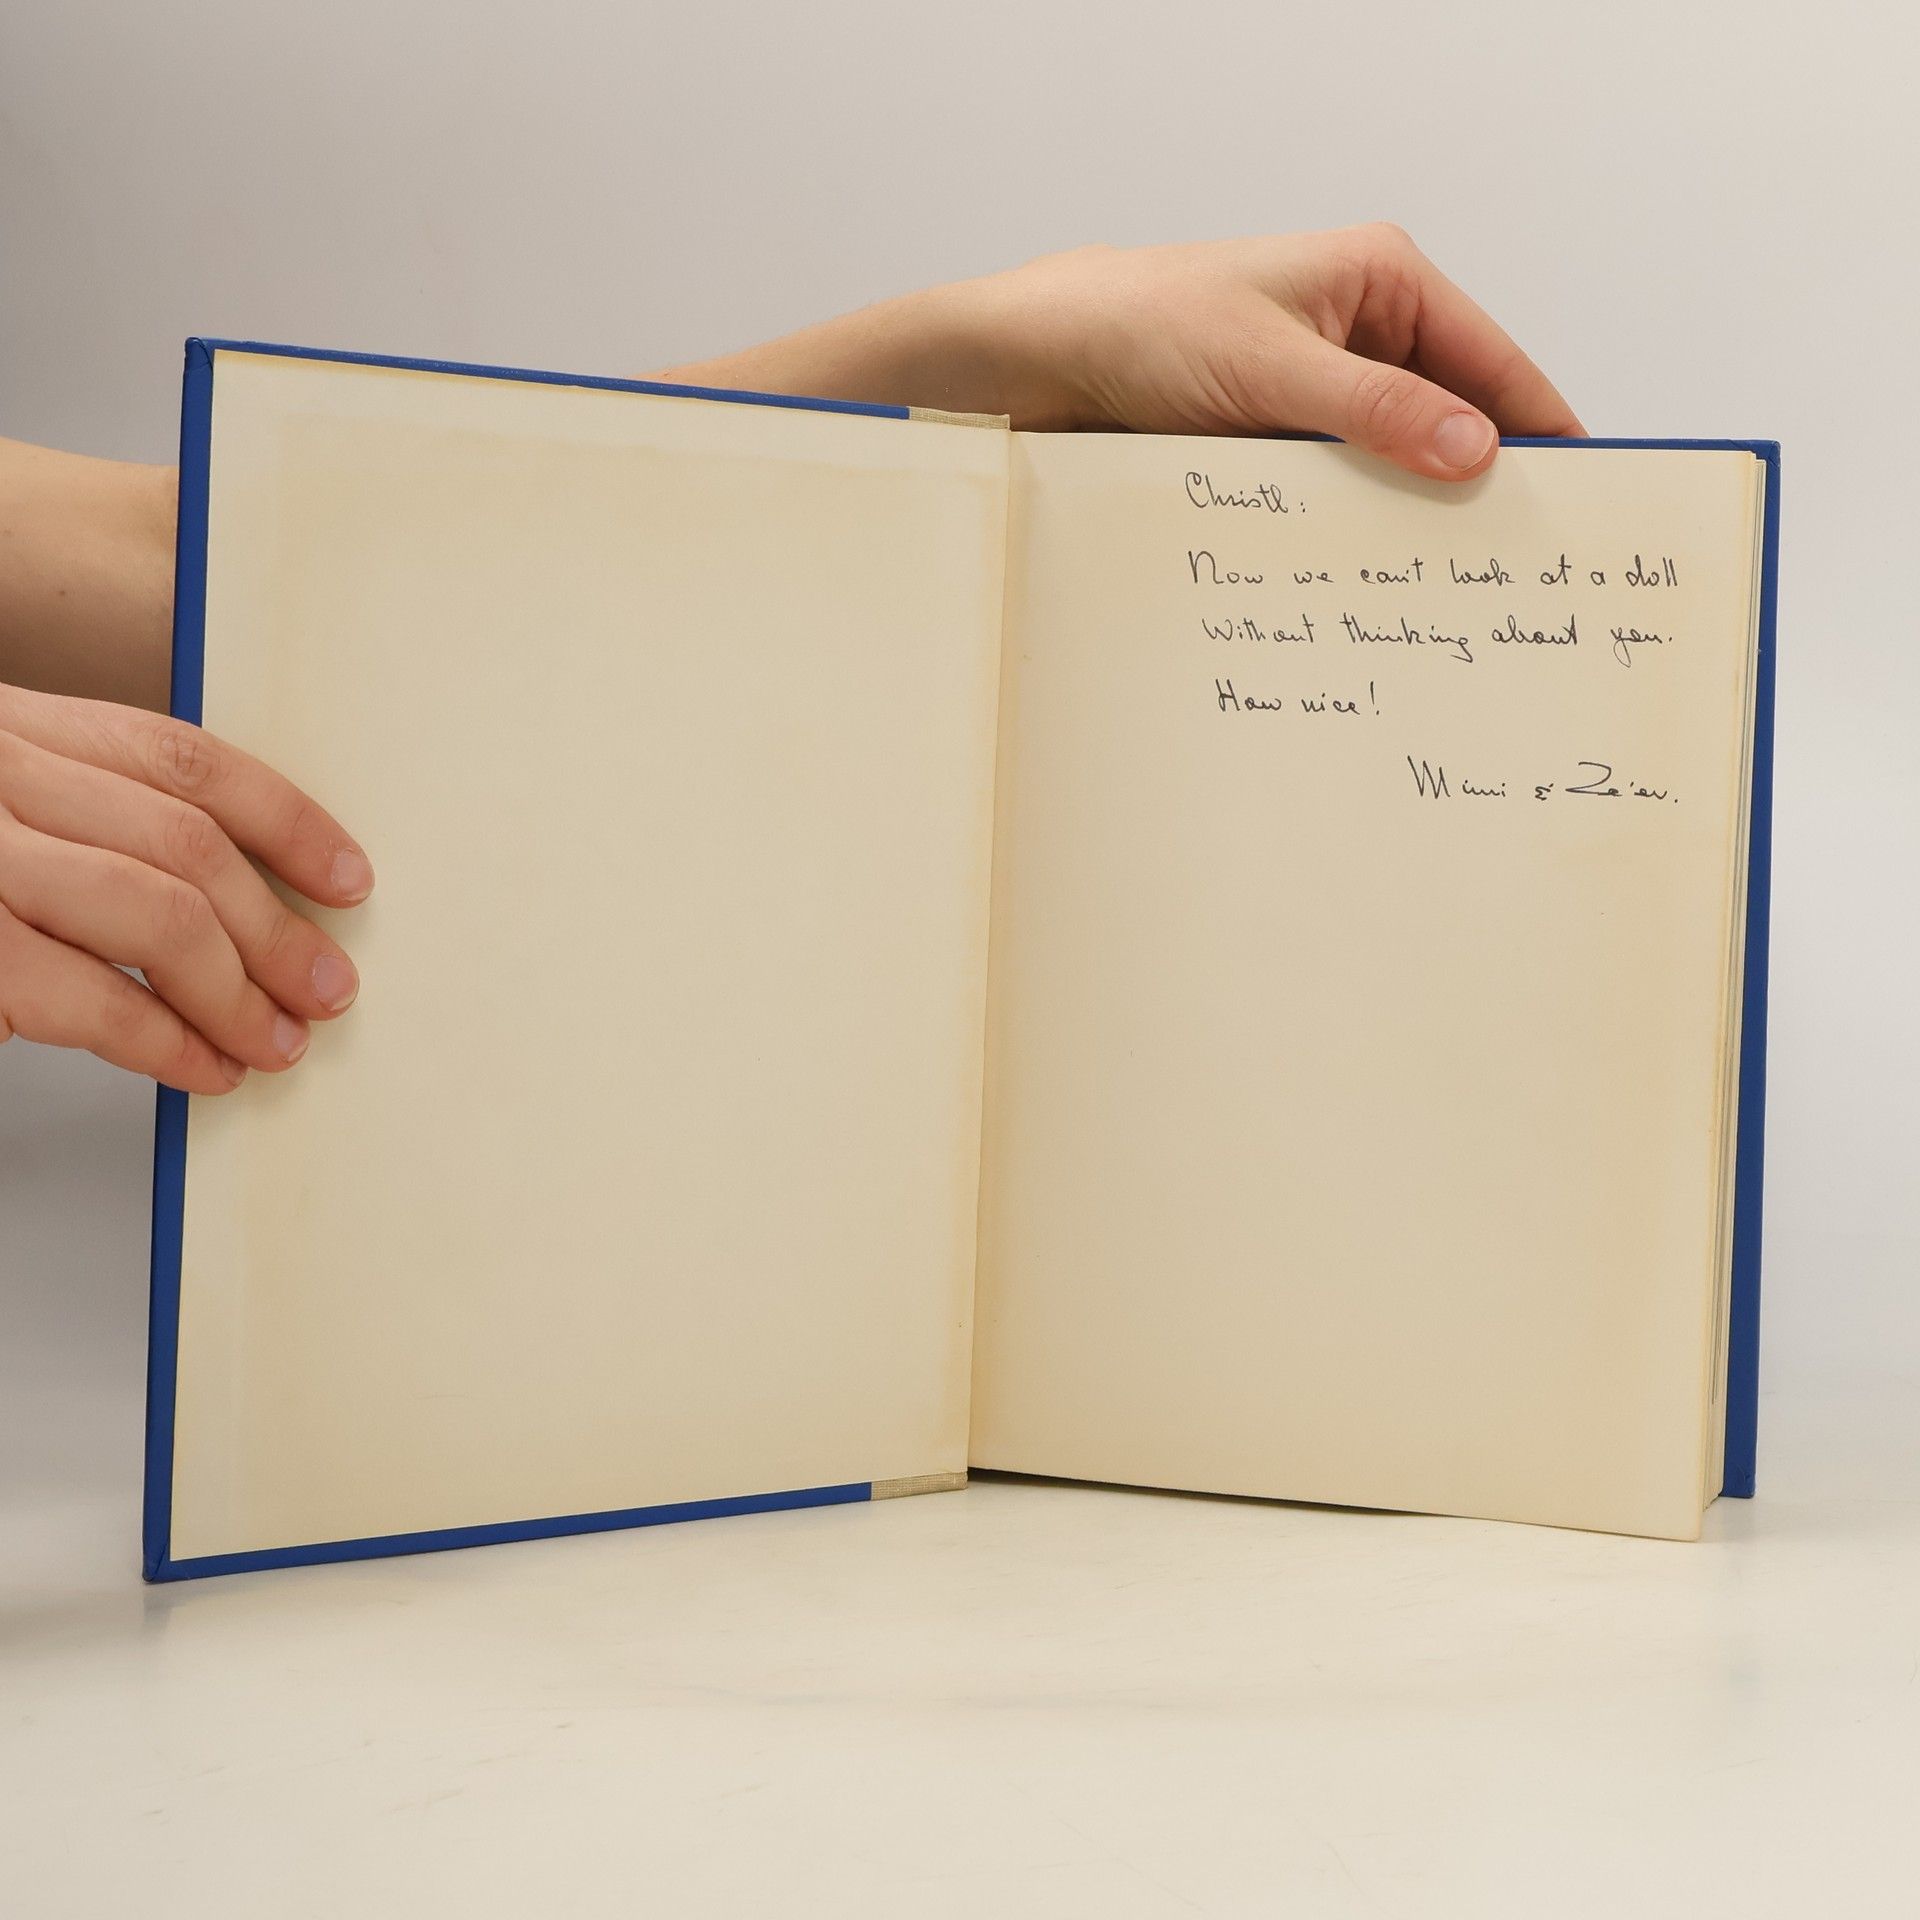 Christl:
Now we can't look at a doll
Without thinking about you.
How nice!
Mimi & Ze'ev.